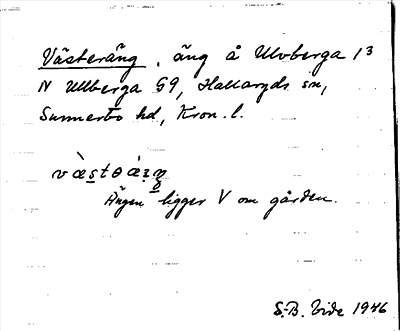 Västeräng, äng å Ulvberga 1³
N Ullberga G9, Hallaryds sn,
Sunnerbo hd, Kron. l.
Ängen ligger V om gården.
S.-B. Vide 1946